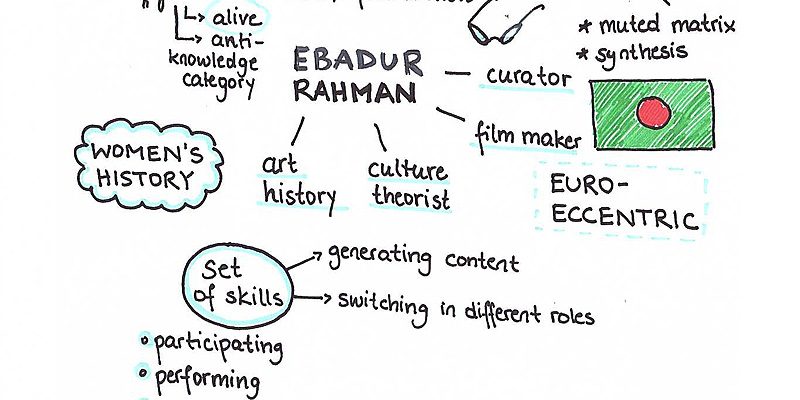 alive
anti-
knowledge
category
* muted matrix
* synthesis
EBADUR
RAHMAN
curator
film maker
art
history
culture
theorist
WOMEN'S
HISTORY
EURO-
ECCENTRIC
Set
of skills
generating content
switching in different roles
participating
performing